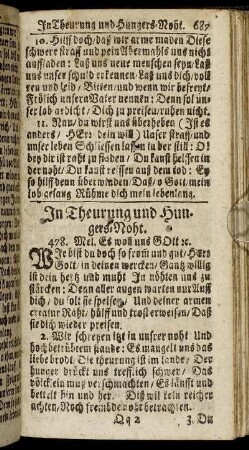 In Theurung und Hungers-Noht. 687
10. Hilf doch, daß wir arme maden Diese
schwere straff und pein Abermahls uns nicht
auffladen: Laß uns neue menschen seyn, Laß
uns unser schuld erkennen, Laß uns dich, voll
reu und leid, Bitten, und wenn wir befreyt,
Frölich unsern Vater nennen: Denn sol un-
ser lob-gedicht, Dich zu preisen, ruhen nicht.
11. Nun, du wilst uns überheben (Ist es
anders, HErr dein will) Unser straff, und
unser leben Schliessen lassen in der still: O!
bey dir ist raht zu finden, Du kanst helffen in
der noht, Du kanst reissen auß dem tod: Ey
so hilff denn überwinden, Daß, o Gott, mein
lob-gesang Rühme dich mein lebenlang.
In Theurung und Hun-
gers-Noht.
478. Mel. Es woll uns GOtt ꝛc.
WIe bist du doch so from und gut, HErr
Gott, in deinen wercken, Gantz willig
ist dein hertz und muht In nöhten uns zu
stärcken: Denn aller augen warten nur Auff
dich, du solt sie speisen, Und deiner armen
creatur Raht, hülff und trost erweisen, Daß
sie dich wieder preisen.
2. Wir schreyen itzt in unsrer noht Und
hochbetrübtem stande: Es mangelt uns das
liebe brodt, Die theurung ist im lande, Der
hunger drückt uns trefflich schwer, Das
völcklein muß verschmachten, Es läufft und
bettelt hin und her. Diß wil kein reicher
achten, Noch frembde noht betrachten.
Qq 2 3. Du